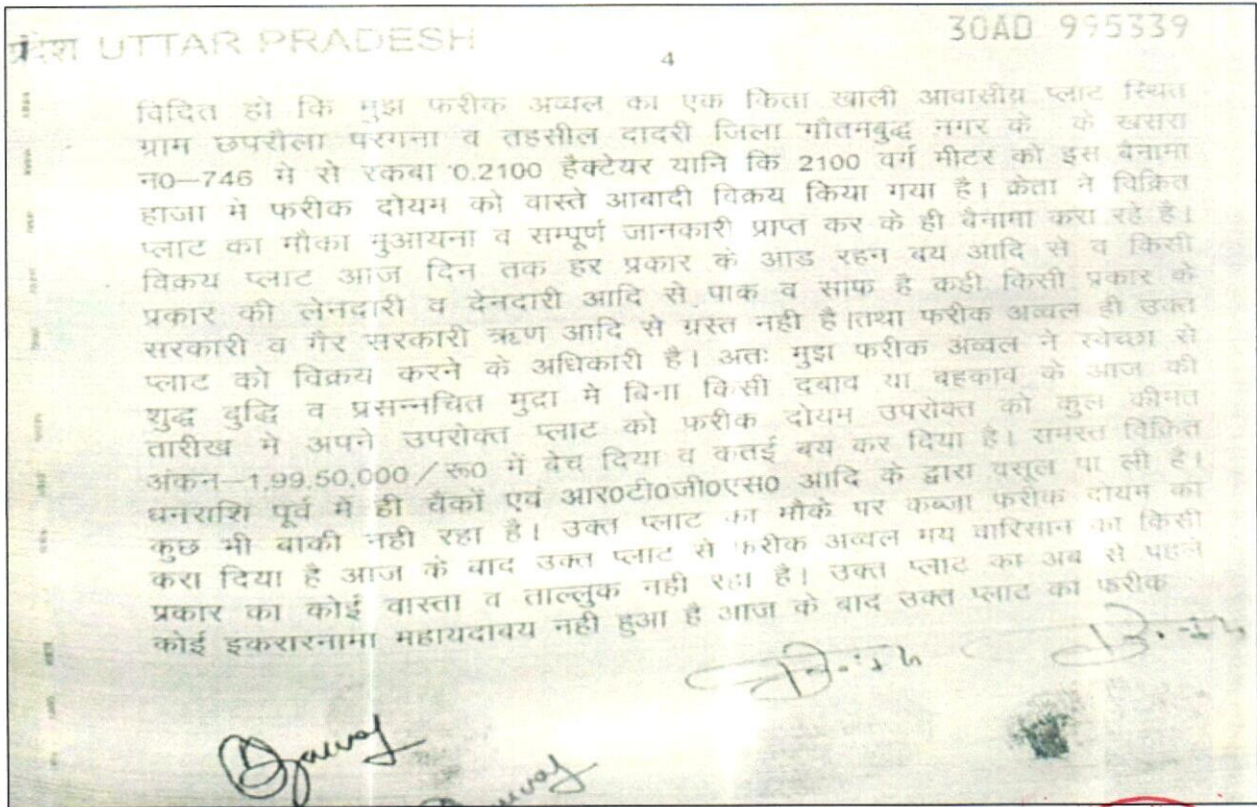 प्रदेश UTTAR PRADESH
30AD 995339
4
विदित हो कि मुझ फरीक अव्वल का एक किता खाली आवासीय प्लाट स्थित
ग्राम छपरौला परगना व तहसील दादरी जिला गौतमबुद्ध नगर के के खसरा
न0—746 मे से रकबा 0.2100 हैक्टेयर यानि कि 2100 वर्ग मीटर को इस बैनामा
हाजा मे फरीक दोयम को वास्ते आबादी विक्रय किया गया है। क्रेता ने विक्रित
प्लाट का मौका मुआयना व सम्पूर्ण जानकारी प्राप्त कर के ही बैनामा करा रहे है।
विक्रय प्लाट आज दिन तक हर प्रकार के आड रहन बय आदि से व किसी
प्रकार की लेनदारी व देनदारी आदि से पाक व साफ है कही किसी प्रकार के
सरकारी व गैर सरकारी ऋण आदि से ग्रस्त नही है।तथा फरीक अव्वल ही उक्त
प्लाट को विक्रय करने के अधिकारी है। अतः मुझ फरीक अव्वल ने स्वेच्छा से
शुद्ध बुद्धि व प्रसन्नचित मुद्रा मे बिना किसी दबाव या बहकाव के आज की
तारीख मे अपने उपरोक्त प्लाट को फरीक दोयम उपरोक्त को कुल कीमत
अंकन—1,99,50,000/रू0 में बेच दिया व कतई बय कर दिया है। समस्त विक्रित
धनराशि पूर्व में ही बैकों एवं आर0टी0जी0एस0 आदि के द्वारा वसूल पा ली है।
कुछ भी बाकी नही रहा है। उक्त प्लाट का मौके पर कब्जा फरीक दोयम को
करा दिया है आज के बाद उक्त प्लाट से फरीक अव्वल मय वारिसान का किसी
प्रकार का कोई वास्ता व ताल्लुक नही रहा है। उक्त प्लाट का अब से पहले
कोई इकरारनामा महायदाबय नही हुआ है आज के बाद उक्त प्लाट का फरीक